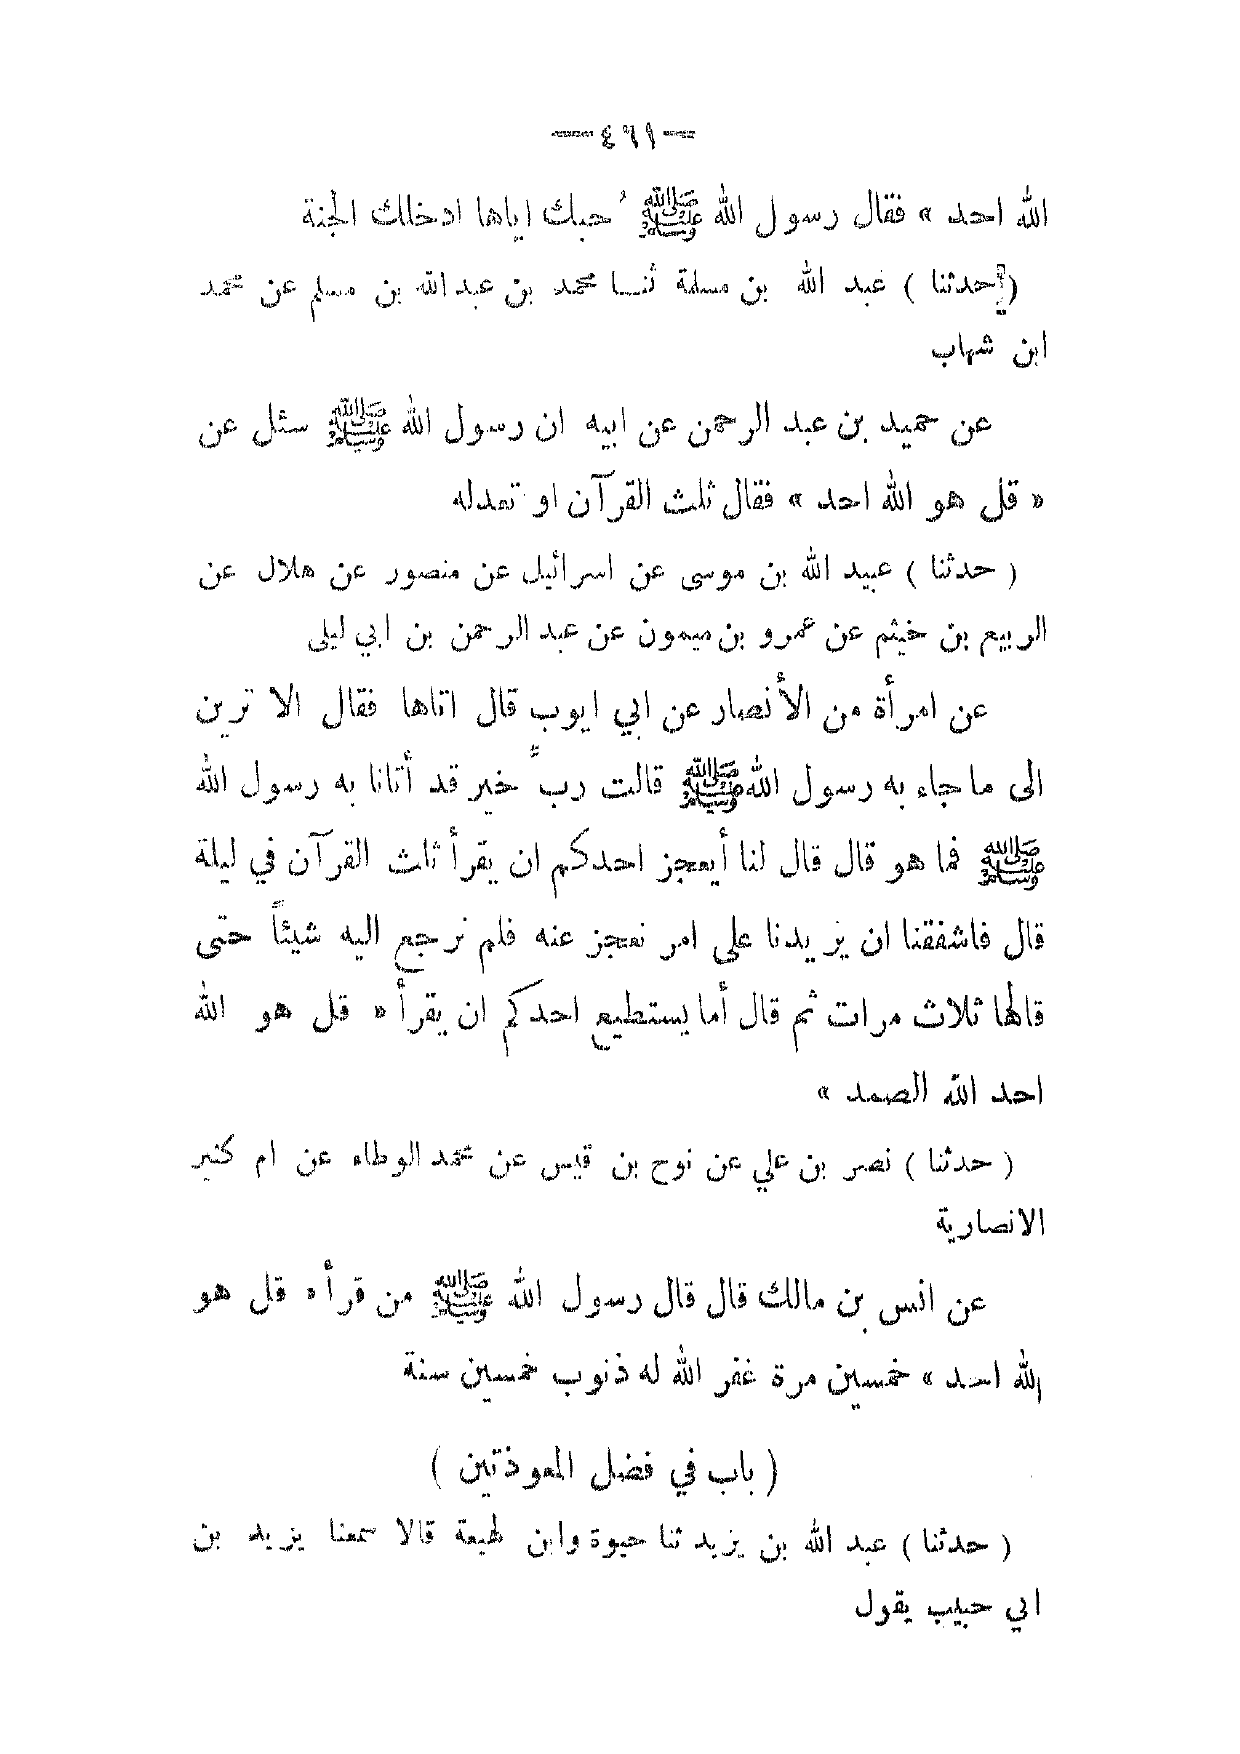 —٤٦١—
الله احد » فقال رسول الله ﷺ حبك اياها ادخلك الجنة
( حدثنا ) عبد الله بن مسلمة ثنا محمد بن عبد الله بن مسلم عن محمد
ابن شهاب
عن حميد بن عبد الرحمن عن ابيه ان رسول الله ﷺ سئل عن
« قل هو الله احد » فقال ثلث القرآن او تعدله
( حدثنا ) عبيد الله بن موسى عن اسرائيل عن منصور عن هلال عن
الربيع بن خيثم عن عمرو بن ميمون عن عبد الرحمن بن ابي ليلى
عن امرأة من الأنصار عن ابي ايوب قال اتاها فقال الا ترين
الى ما جاء به رسول الله ﷺ قالت ربّ خير قد أتانا به رسول الله
ﷺ فما هو قال قال لنا أيعجز احدكم ان يقرأ ثلث القرآن في ليلة
قال فاشفقنا ان يزيدنا على امر نعجز عنه فلم نرجع اليه شيئاً حتى
قالها ثلاث مرات ثم قال أما يستطيع احدكم ان يقرأ « قل هو الله
احد الله الصمد »
( حدثنا ) نصر بن علي عن نوح بن قيس عن محمد الوطاء عن ام كثير
الانصارية
عن انس بن مالك قال قال رسول الله ﷺ من قرأ « قل هو
الله احد » خمسين مرة غفر الله له ذنوب خمسين سنة
( باب في فضل المعوذتين )
( حدثنا ) عبد الله بن يزيد ثنا حيوة وابن لهيعة قالا سمعنا يزيد بن
ابي حبيب يقول